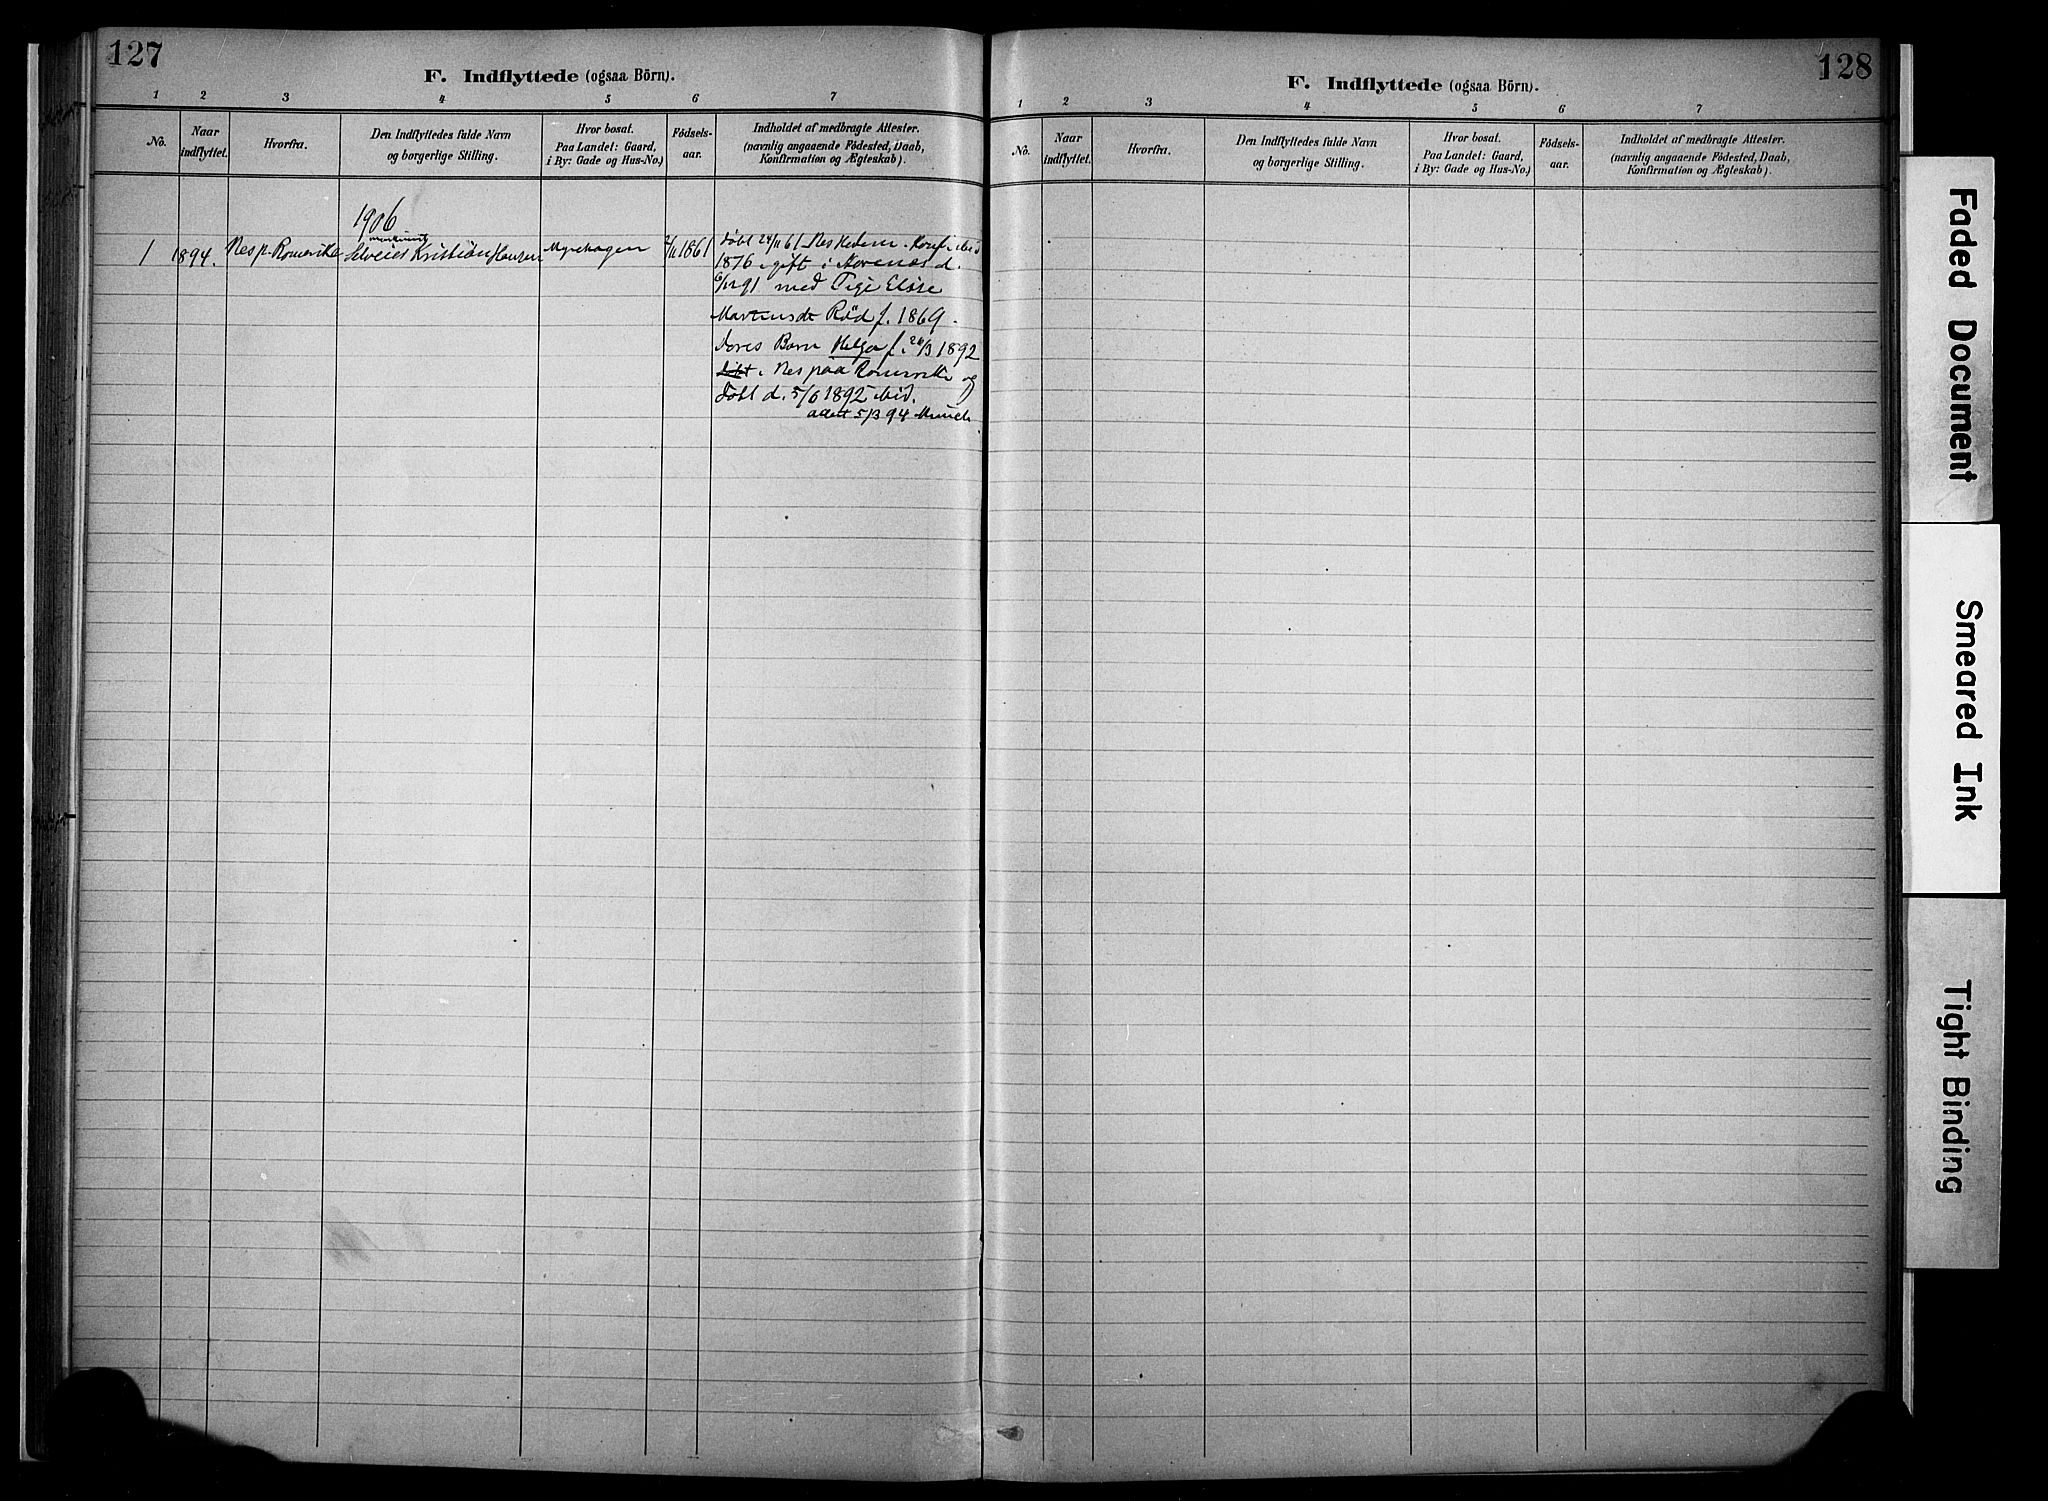 127
F. Indflyttede (ogsaa Börn).
1 2 3 4 5 6 7
No.
Naar
indflyttet.
Hvorfra.
Den Indflyttedes fulde Navn
og borgerlige Stilling.
Hvor bosat.
Paa Landet: Gaard,
i By: Gade og Hus-No.)
Fødsels-
aar.
Indholdet af medbragte Attester.
(navnlig angaaende Fødested, Daab,
Konfirmation og Ægteskab).
1906
1 1894. Nes p. Romerike Kristian Hansen Myrehagen 1861
Døbt 24/11 61 Nes Hedem. Konf. ibid
1876 gift i d.
91 med Elise
Rød f. 1869.
Deres Barn Helga f. 26/3 1892
i Nes paa Romerike og
døbt d. 5/6 1892 ibid.
5/3 94 Munch
128
F. Indflyttede (ogsaa Börn).
1 2 3 4 5 6 7
No.
Naar
indflyttet.
Hvorfra.
Den Indflyttedes fulde Navn
og borgerlige Stilling.
Hvor bosat.
Paa Landet: Gaard,
i By: Gade og Hus-No.)
Fødsels-
aar.
Indholdet af medbragte Attester.
(navnlig angaaende Fødested, Daab,
Konfirmation og Ægteskab).
Faded Document
Smeared Ink
Tight Binding